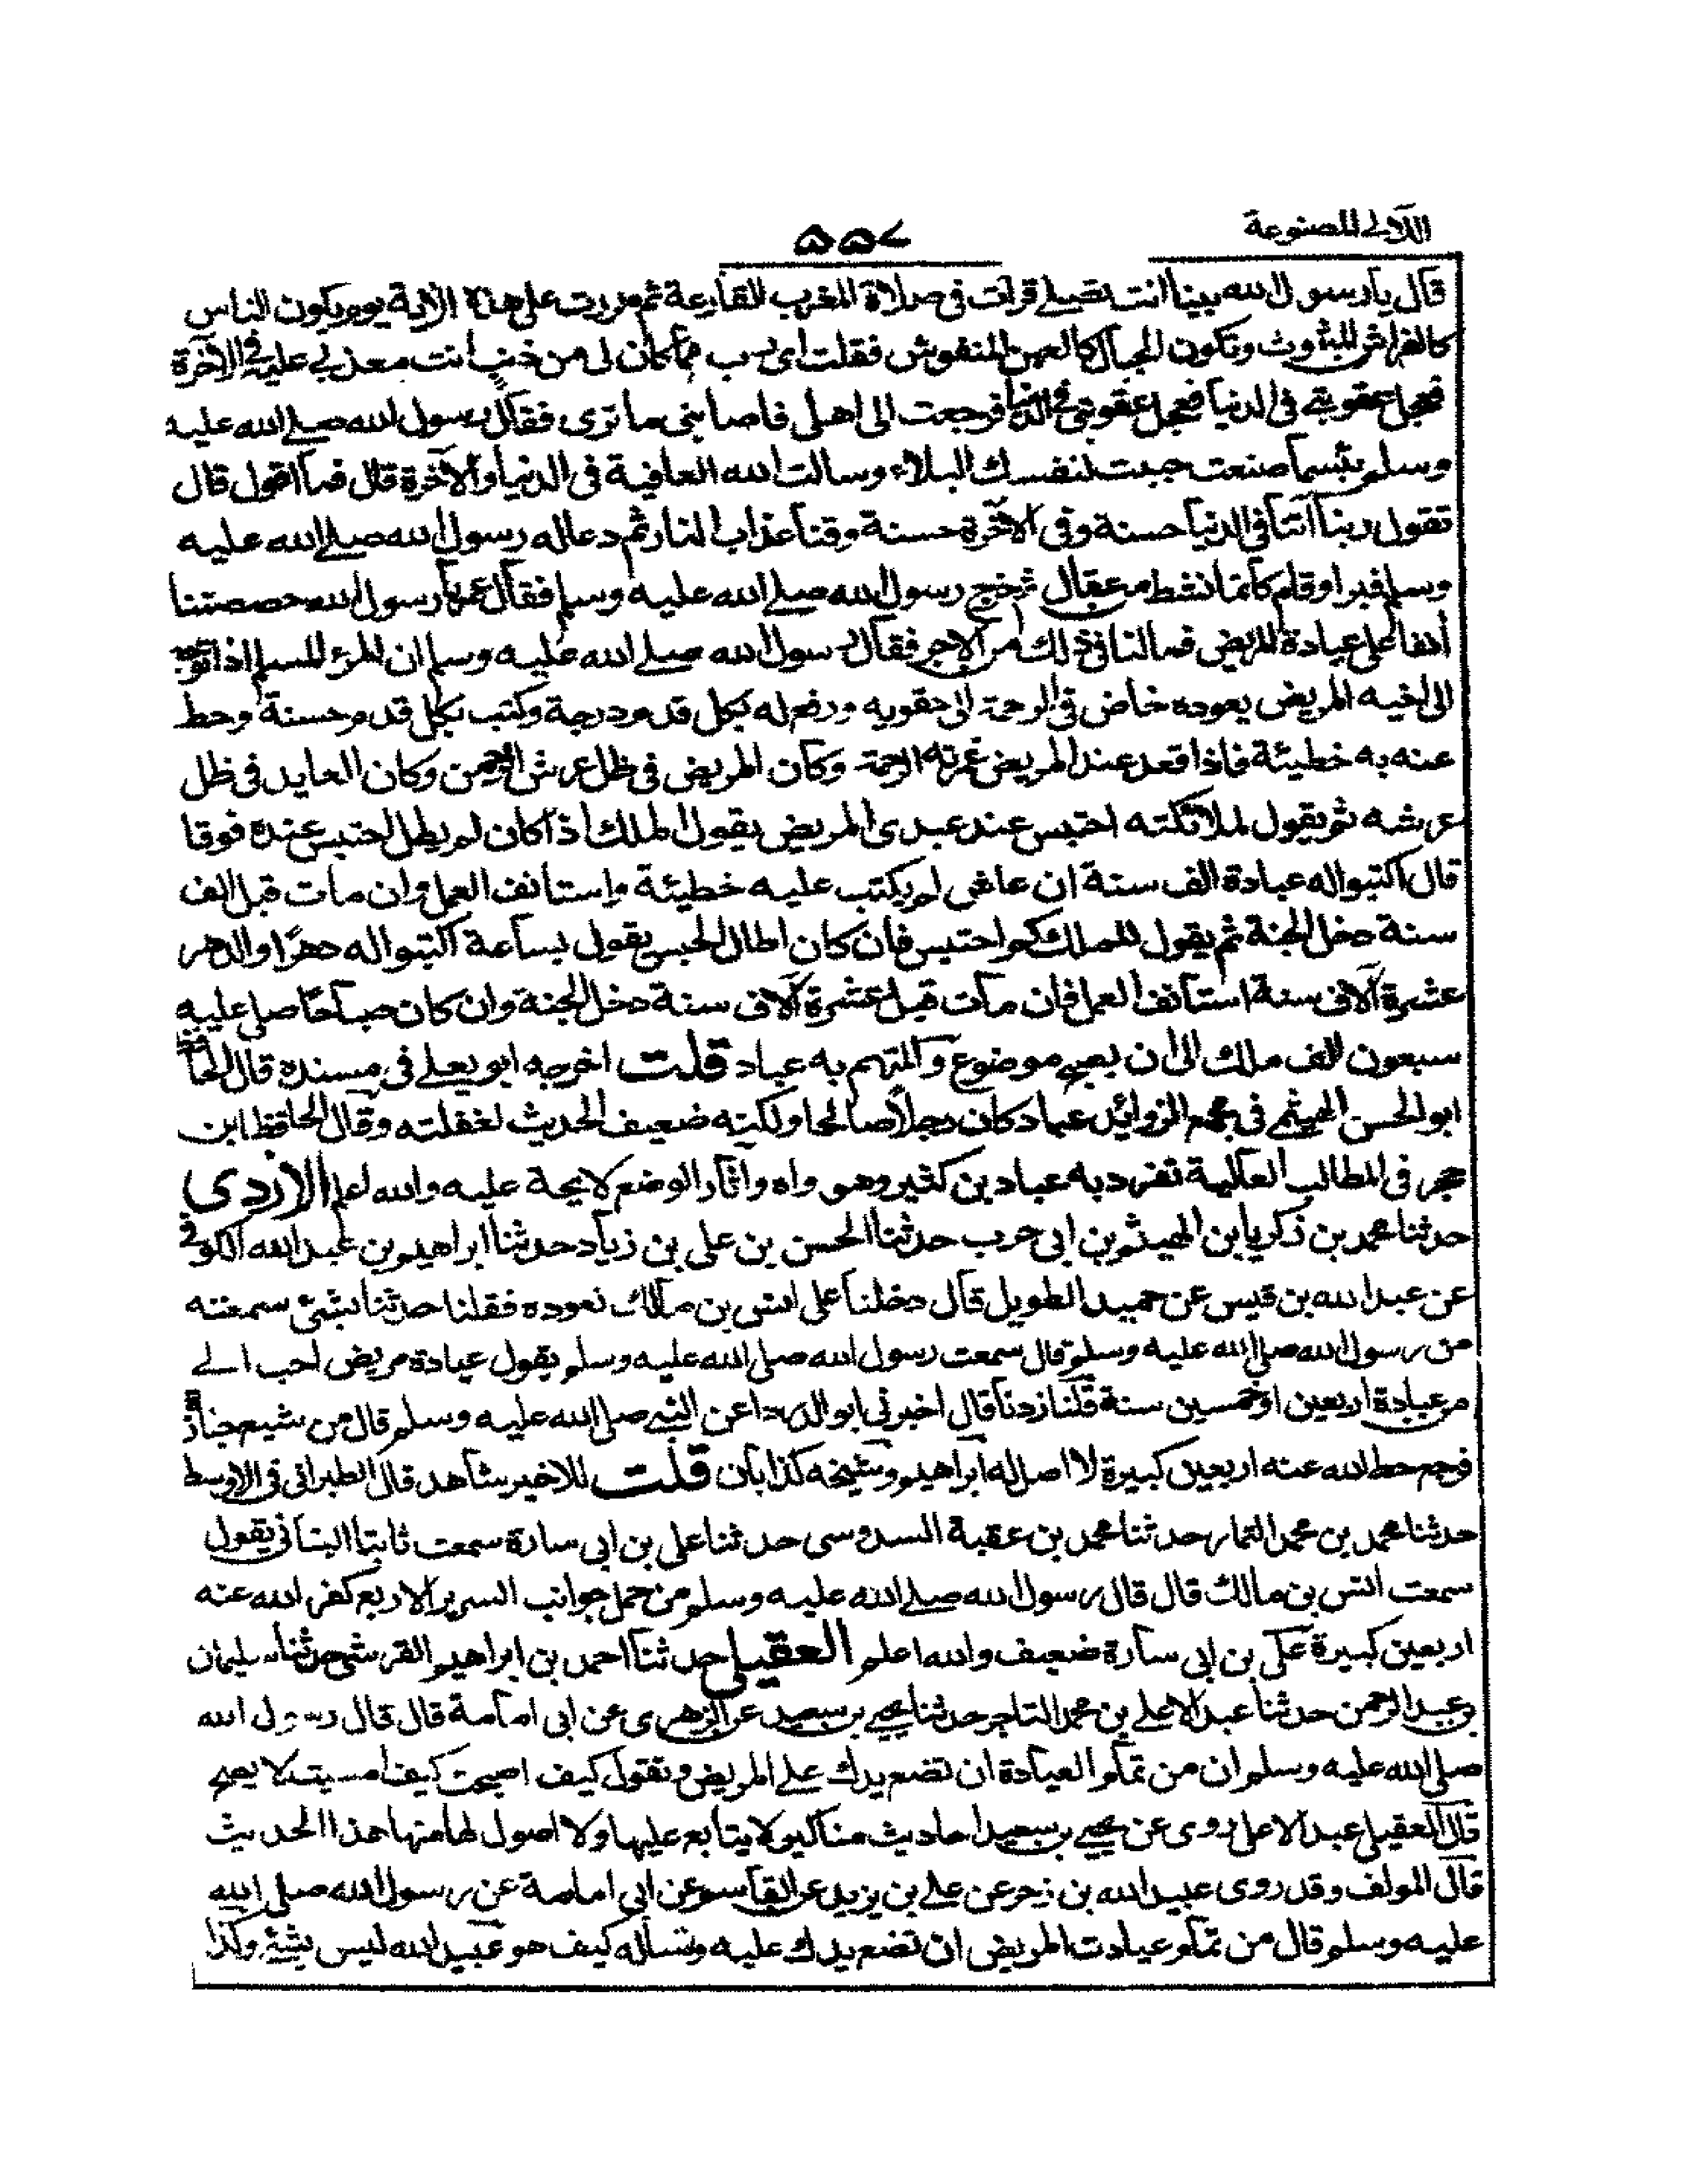 اللآلى المصنوعة
۵۵۷
قال يا رسول الله بينا انت تصلے قرات فى صلاة المغرب القارعة ثم مررت على هذه الآية يوم يكون الناس
كالفراش المبثوث وتكون الجبال كالعهن المنفوش فقلت اى رب مما كان لى من ذنب انت معذبى عليه فى الآخرة
فعجل عقوبتى فى الدنيا فعجل عقوبتى فى الدنيا فرجعت الى اهلى فاصابنى ما ترى فقال رسول الله صلے الله عليه
وسلم بئسما صنعت جبت لنفسك البلاء وسالت الله العافية فى الدنيا والآخرة قال فما اقول قال
تقول ربنا آتنا فى الدنيا حسنة وفى الآخرة حسنة وقنا عذاب النار ثم دعا له رسول الله صلے الله عليه
وسلم فبرا وقام كانما نشط من عقال ثم خرج رسول الله صلے الله عليه وسلم فقال عمر يا رسول الله حصصتنا
أنفا على عيادة المريض فما لنا فى ذلك من الاجر فقال رسول الله صلے الله عليه وسلم ان المرء المسلم اذا توجه
الى اخيه المريض يعوده خاض فى الرحمة الى حقويه ورفع له بكل قدم درجة وكتب بكل قدم حسنة وحط
عنه به خطيئة فاذا قعد عند المريض غمرته الرحمة وكان المريض فى ظل عرش الرحمن وكان العايد فى ظل
عرشه ثم يقول لملائكته احتبس عند عبدى المريض يقول الملك اذا كان لم يطل احتبس عنده فوقا
قال اكتبوا له عبادة الف سنة ان عاش لم يكتب عليه خطيئة واستانف العمل وان مات قبل الف
سنة دخل الجنة ثم يقول للملك كم احتبس فان كان اطال الحبس يقول بساعة اكتبوا له دهرًا والدهر
عشرة آلاف سنة استانف العمل فان مات قبل عشرة آلاف سنة دخل الجنة وان كان صباحا صلى عليه
سبعون الف ملك الى ان يصبح موضوع والمتهم به عباد قلت اخرجه ابو يعلے فى مسنده قال الحافظ
ابو الحسن الهيثمى فى مجمع الزوائد عباد كان رجلاً صالحا ولكنه ضعيف الحديث لغفلته وقال الحافظ ابن
حجر فى المطالب العالية تفرد به عباد بن كثير وهو واه وآثار الوضع لايحة عليه والله اعلم الازدى
حدثنا محمد بن زكريا ابن الهيثم بن ابى حرب حدثنا الحسن بن على بن زياد حدثنا ابراهيم بن عبد الله الكوفى
عن عبد الله بن قيس عن حميد الطويل قال دخلنا على انس بن مالك نعوده فقلنا حدثنا بشئ سمعته
من رسول الله صلى الله عليه وسلم قال سمعت رسول الله صلى الله عليه وسلم يقول عيادة مريض احب الے
من عبادة اربعين او خمسين سنة قلنا زدنا قال اخبرنى ابو الدرداء عن النبى صلى الله عليه وسلم قال من شيع جنازة
فرجع حط الله عنه اربعين كبيرة لا اصل له ابراهيم وشيخه كذابان قلت للاخير شاهد قال الطبرانى فى الاوسط
حدثنا محمد بن محمد التمار حدثنا محمد بن عقبة السدوسى حدثنا على بن ابى سارة سمعت ثابتا البنانى يقول
سمعت انس بن مالك قال قال رسول الله صلے الله عليه وسلم من حمل جوانب السرير الاربع كفر الله عنه
اربعين كبيرة على بن ابى سارة ضعيف والله اعلم العقيلى حدثنا احمد بن ابراهيم القرشى حدثنا سليمان
بن عبد الرحمن حدثنا عبد الاعلے بن محمد التاجر حدثنا يحيے بن سعيد عن الزهرى عن ابى امامة قال قال رسول الله
صلى الله عليه وسلم ان من تمام العيادة ان تضع يدك على المريض وتقول كيف اصبحت كيف امسيت لا يصح
قال العقيلى عبد الاعلى روى عن يحيے بن سعيد احاديث مناكير لا يتابع عليها ولا اصول لها منها هذا الحديث
قال المولف وقد روى عبيد الله بن زحر عن على بن يزيد عن القاسم عن ابى امامة عن رسول الله صلى الله
عليه وسلم قال من تمام عيادت المريض ان تضع يدك عليه وتسأله كيف هو عبيد الله ليس بشئ وكذا